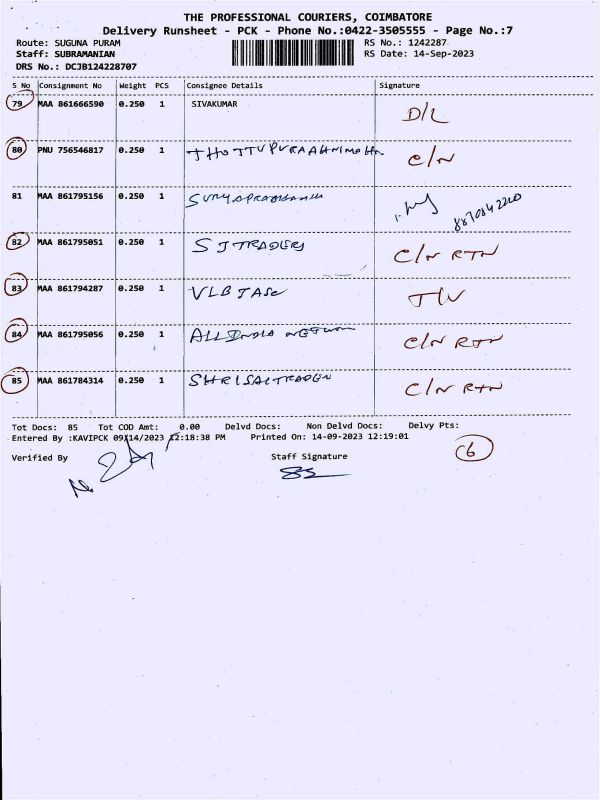 THE PROFESSIONAL COURIERS, COIMBATORE
Delivery Runsheet - PCK - Phone No.:0422-3505555 - Page No.:7
Route: SUGUNA PURAM RS No.: 1242287
Staff: SUBRAMANIAN RS Date: 14-Sep-2023
DRS No.: DCJB124228707
S No Consignment No Weight PCS Consignee Details Signature
79 MAA 861666590 0.250 1 SIVAKUMAR D/L
80 PNU 756546817 0.250 1 C/N
81 MAA 861795156 0.250 1
82 MAA 861795051 0.250 1 S J TRADERS C/N RTN
83 MAA 861794287 0.250 1 VLB JASC
84 MAA 861795056 0.250 1 ALL INDIA NETWORK C/N RTN
85 MAA 861784314 0.250 1 SHRI SAI TRADEN C/N RTN
Tot Docs: 85 Tot COD Amt: 0.00 Delvd Docs: Non Delvd Docs: Delvy Pts:
Entered By :KAVIPCK 09/14/2023 12:18:38 PM Printed On: 14-09-2023 12:19:01
6
Verified By Staff Signature